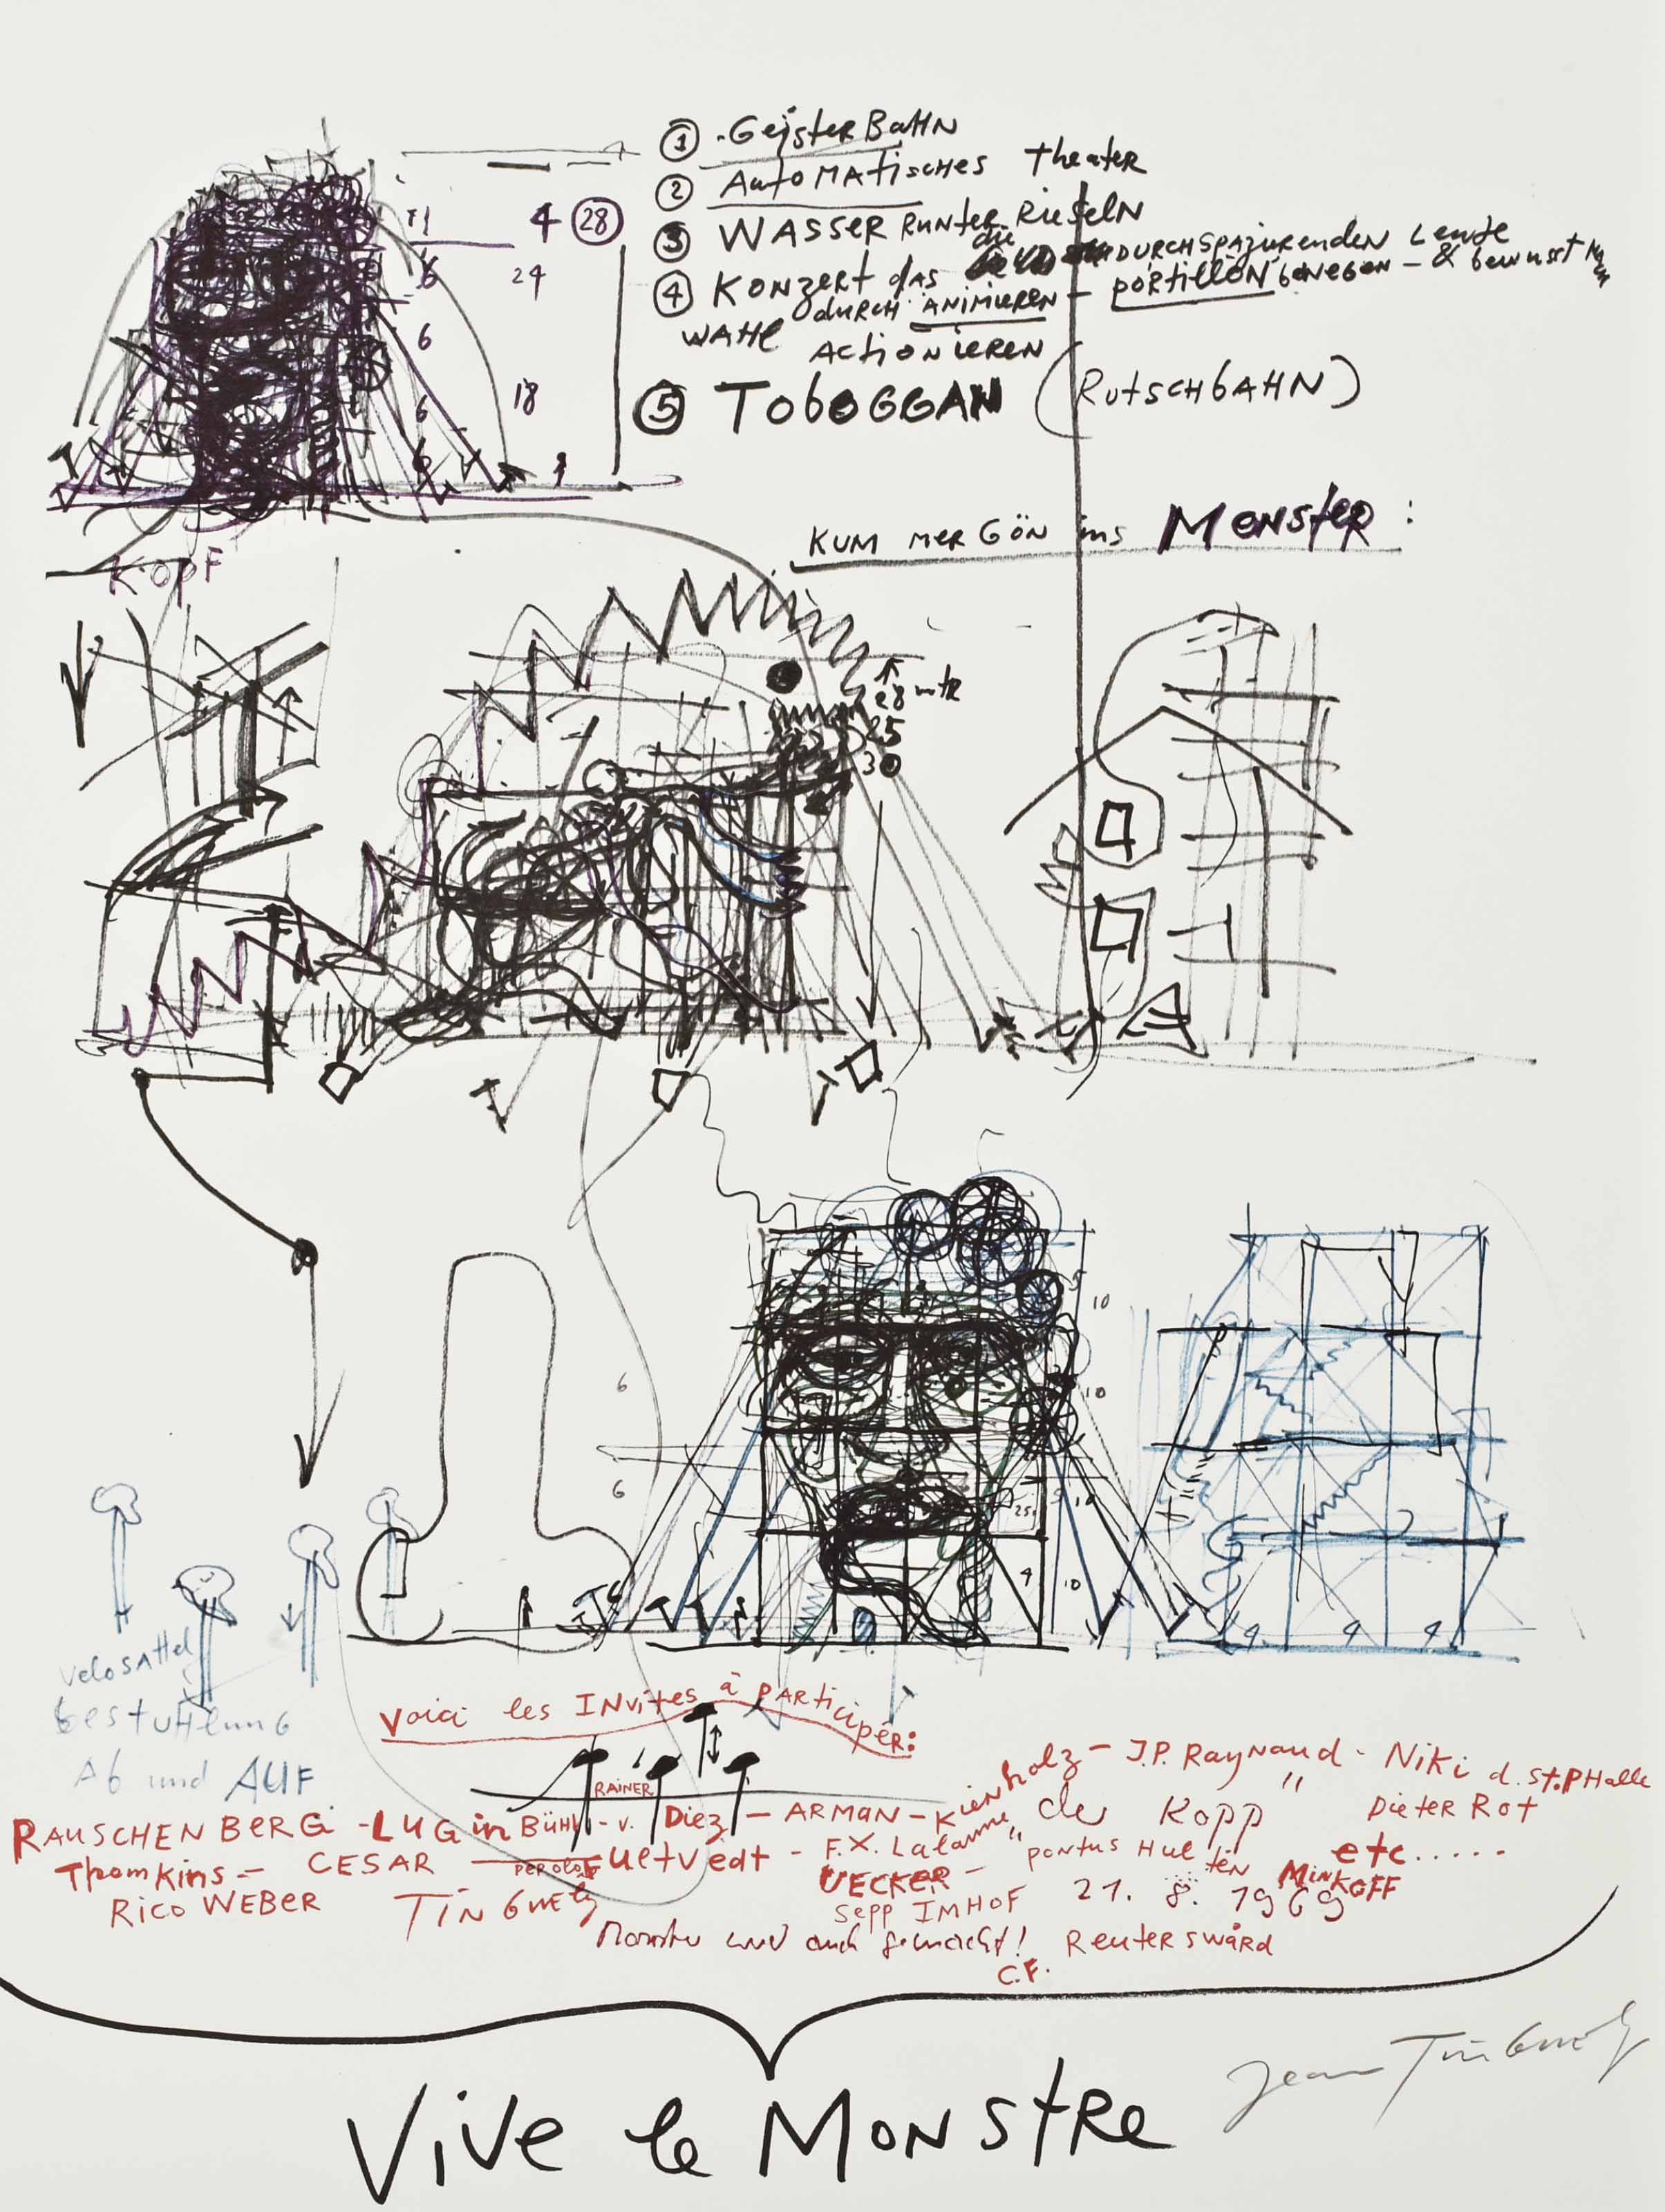 ① Geister Bahn
② AutoMAtiscHes theater
③ WASSER RunteR Rieseln
④ Konzert das die DURCHSPAZIERENDEN Leute
durch ANIMIEREN - portillon bewegen - & bewusst
WAHl ACtionieren
⑤ TobOGGAN (RutscHbAHN)
11
4 ㉘
6
24
6
6
18
6
KOPF
KUM mer GÖN ins MONSteR:
28 mtr
25
30
5
10
10
6
6
5
10
25
4
10
4 4 4
velosAttel
bestuHlunG
Ab und AUF
Voici les INvites à pARticipér:
RAUSCHENBERG - LUGinBÜHl - v. RAINER Diez - ARMAN - Kienholz - J.P. Raynaud - Niki d. St.PHalle
Thomkins - CESAR - PER OLOF UltVedt - F.X. Lalanne "der Kopp" Dieter Rot
UECKER - pontus Hultén Minkoff etc.....
Rico WEBER TinGuely Sepp IMHOF 21. 8. 1969
Monster wird auch gemacht! C.F. ReuterswärD
Vive le MONStRe
Jean TinGuely